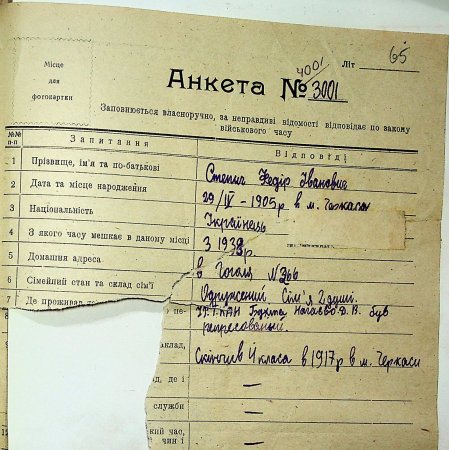 65
4001
Місце
для
фотокартки
Літ
Анкета № 3001
Заповнюється власноручно, за неправдиві відомості відповідає по закону
військового часу
№№
п-п
Запитання
Відповіді
1 Прізвище, ім'я та по-батькові Степич Федір Іванович
2 Дата та місце народження 29/IV - 1905р в м. Черкаси
3 Національність Українець
4 З якого часу мешкає в даному місці З 1938р.
5 Домашня адреса в. Гоголя № 266
6 Сімейний стан та склад сім'ї Одружений. Сім'я 2 душі.
7 Де проживал Бухта Нагаєво Д. В. був
репресований.
Скінчив 4 класа в 1917р в м. Черкаси
ад, де і —
служби —
кий час,
чин і —